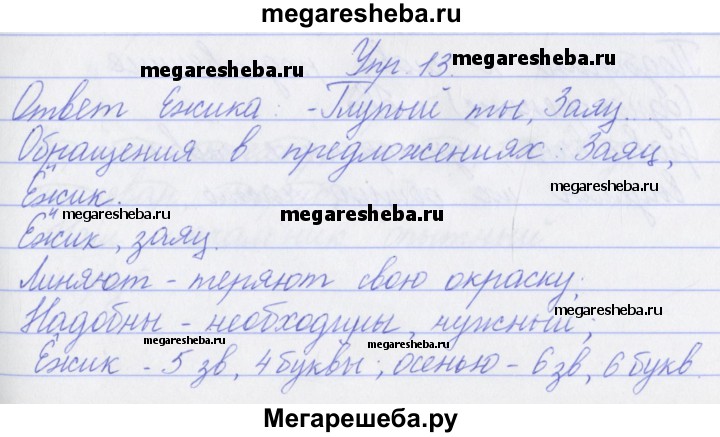 megaresheba.ru
megaresheba.ru
Упр. 13.
megaresheba.ru
Ответ Ежика: -Глупый ты, Заяц.
Обращения в предложениях: Заяц,
Ёжик.
megaresheba.ru
megaresheba.ru
megaresheba.ru
Ёжик, заяц.
Линяют - теряют свою окраску;
megaresheba.ru
Надобны - необходимы, нужный;
megaresheba.ru
megaresheba.ru
Ёжик - 5 зв, 4 буквы; осенью - 6 зв, 6 букв.
Мегарешеба.ру